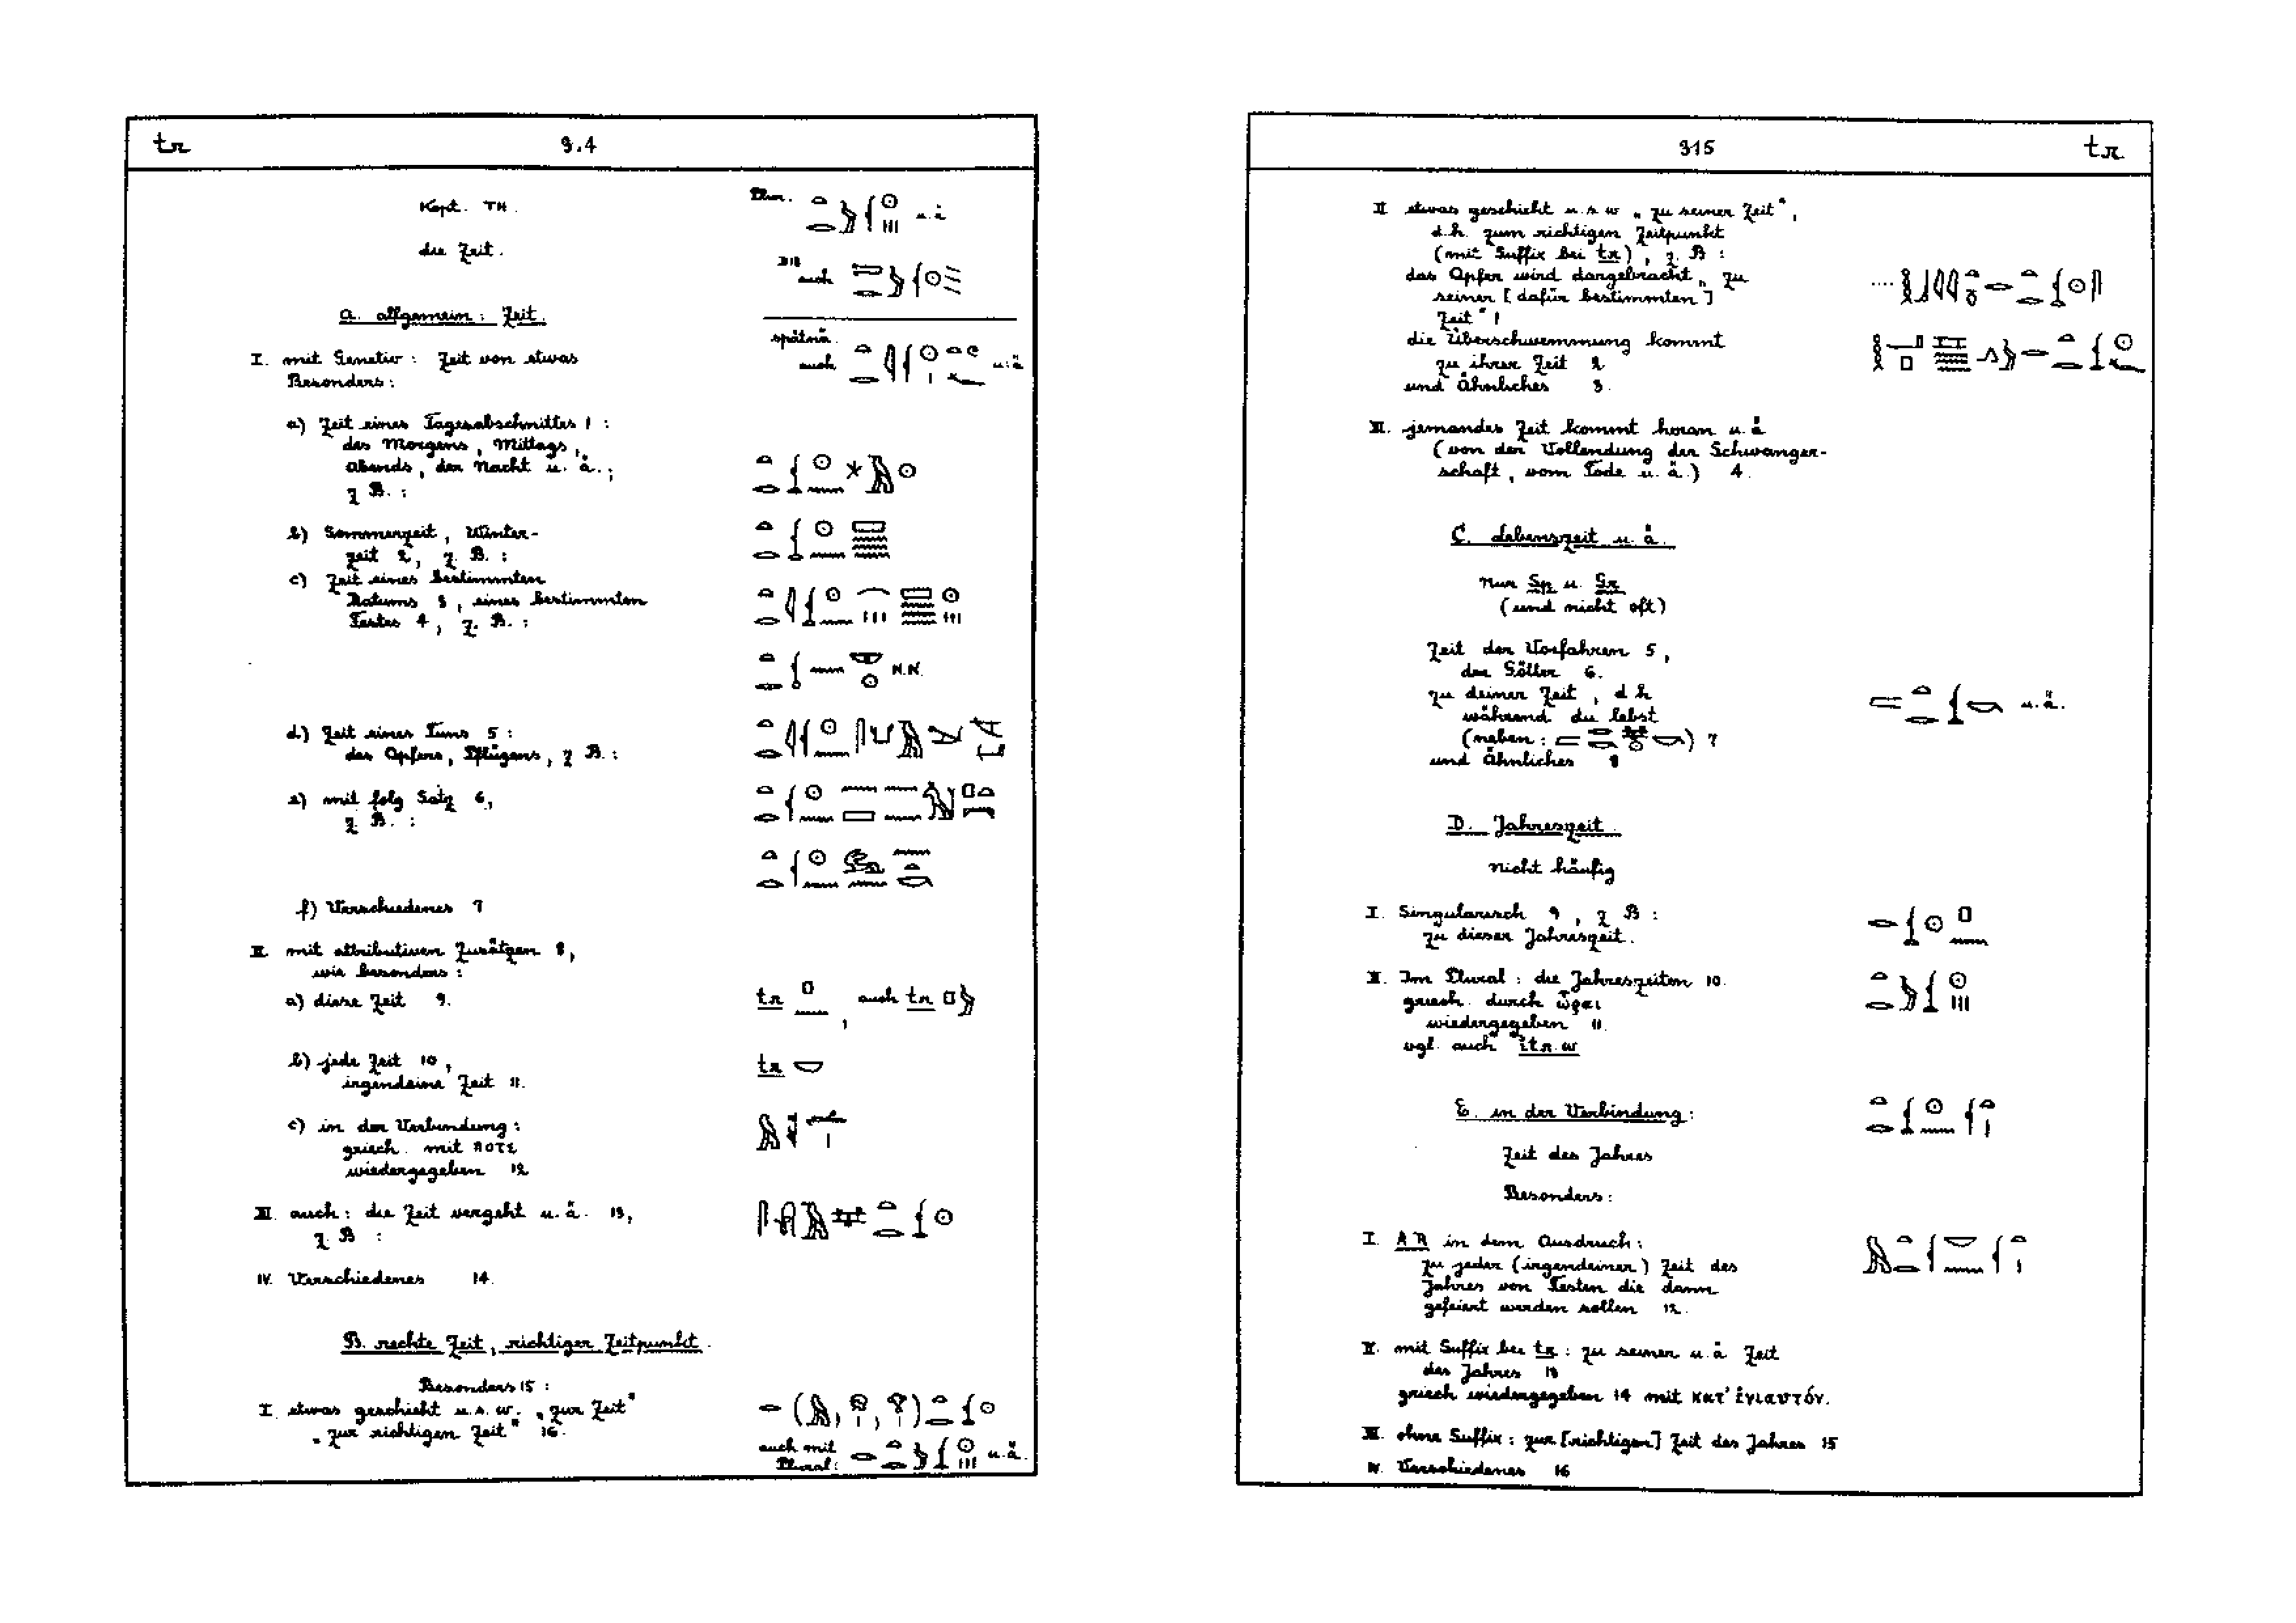 tr 3.4
Kopt. TH.
die Zeit.
Plur. u.ä
D18
auch
A. allgemein: Zeit.
spätnä.
auch u.ä
I. mit Genetiv: Zeit von etwas
Besonders:
a) Zeit eines Tagesabschnittes 1:
des Morgens, Mittags,
Abends, der Nacht u. ä.;
z B.:
b) Sommerzeit, Winter-
zeit 2, z. B.:
c) Zeit eines bestimmten
Datums 3, eines bestimmten
Festes 4, z. B.:
N.N.
d) Zeit eines Tuns 5:
des Opfers, Pflügens, z B.:
e) mit folg Satz 6,
z. B.:
f) Verschiedenes 7
II. mit attributiven Zusätzen 8,
wie besonders:
a) diese Zeit 9. tr , auch tr
b) jede Zeit 10, tr
irgendeine Zeit 11.
c) in der Verbindung:
griech. mit ποτε
wiedergegeben 12
III. auch: die Zeit vergeht u. ä. 13,
z B :
IV. Verschiedenes 14.
B. rechte Zeit, richtiger Zeitpunkt.
Besonders 15:
I. etwas geschieht u. s. w. „zur Zeit"
„zur richtigen Zeit" 16.
auch mit
Plural: u. ä.
315 tr
II etwas geschieht u. s w „zu seiner Zeit",
d.h. zum richtigen Zeitpunkt
(mit Suffix bei tr), z. B:
das Opfer wird dargebracht „zu
seiner [dafür bestimmten]
Zeit" 1
die Überschwemmung kommt
zu ihrer Zeit 2
und Ähnliches 3.
III. jemandes Zeit kommt heran u. ä
(von der Vollendung der Schwanger-
schaft, vom Tode u. ä.) 4.
C. Lebenszeit u. ä.
Nur Sp u. Gr
(und nicht oft)
Zeit der Vorfahren 5,
der Götter 6.
zu deiner Zeit, d h
während du lebst u. ä.
(neben: ) 7
und Ähnliches 8
D. Jahreszeit.
nicht häufig
I. Singularisch 9, z B:
zu dieser Jahreszeit.
II. Im Plural: die Jahreszeiten 10.
griech. durch ὧραι
wiedergegeben 11.
vgl. auch itr.w
E. in der Verbindung:
Zeit des Jahres
Besonders:
I. AR in dem Ausdruck:
zu jeder (irgendeiner) Zeit des
Jahres von Festen die dann
gefeiert werden sollen 12.
II. mit Suffix bei tr: zu seiner u. ä Zeit
des Jahres 13
griech wiedergegeben 14 mit κατ' ἐνιαυτόν.
III. ohne Suffix: zur [richtigen] Zeit des Jahres 15
IV. Verschiedenes 16